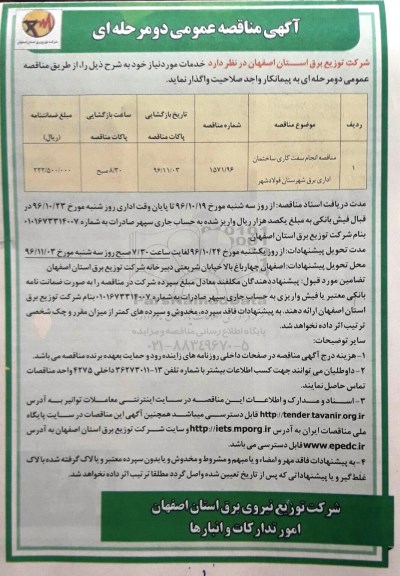 آگهی مناقصه عمومی دو مرحله ای
شرکت توزیع برق استان اصفهان در نظر دارد خدمات موردنیاز خود به شرح ذیل را، از طریق مناقصه
عمومی دو مرحله ای به پیمانکار واجد صلاحیت واگذار نماید.
ردیف موضوع مناقصه شماره مناقصه تاریخ بازگشایی پاکات مناقصه ساعت بازگشایی پاکات مناقصه مبلغ ضمانتنامه (ریال)
۱ مناقصه انجام سفت کاری ساختمان اداری برق شهرستان فولادشهر ۱۵۷۱/۹۶ ۹۶/۱۱/۰۳ ۸/۳۰ صبح ۲۲۲/۵۰۰/۰۰۰
مدت دریافت اسناد مناقصه: از روز سه شنبه مورخ ۹۶/۱۰/۱۹ تا پایان وقت اداری روز شنبه مورخ ۹۶/۱۰/۲۳ در
قبال فیش بانکی به مبلغ یکصد هزار ریال واریز شده به حساب جاری سپهر صادرات به شماره ۰۱۰۱۶۷۳۳۱۴۰۰۷
بنام شرکت توزیع برق استان اصفهان
مدت تحویل پیشنهادات: از روز یکشنبه مورخ ۹۶/۱۰/۲۴ لغایت ساعت ۷/۳۰ صبح روز سه شنبه مورخ ۹۶/۱۱/۰۳
محل تحویل پیشنهادات: اصفهان چهارباغ بالا خیابان شریعتی دبیرخانه شرکت توزیع برق استان اصفهان
تضامین مورد قبول: پیشنهاددهندگان مکلفند معادل مبلغ سپرده شرکت در مناقصه را به صورت ضمانت نامه
بانکی معتبر یا فیش واریزی به حساب جاری سپهر صادرات به شماره ۰۱۰۱۶۷۳۳۱۴۰۰۷ بنام شرکت توزیع برق
استان اصفهان ارائه دهند. به پیشنهادات فاقد سپرده، مخدوش و سپرده های کمتر از میزان مقرر و چک شخصی
ترتیب اثر داده نخواهد شد.
سایر توضیحات:
۱- هزینه درج آگهی مناقصه در صفحات داخلی روزنامه های زاینده رود و حمایت بعهده برنده مناقصه می باشد.
۲- داوطلبان می توانند جهت کسب اطلاعات بیشتر با شماره تلفن ۱۳-۳۶۲۷۳۰۱۱ داخلی ۴۲۷۵ واحد مناقصات
تماس حاصل نمایند.
۳- اسناد و مدارک و اطلاعات این مناقصه در سایت اینترنتی معاملات توانیر به آدرس
http://tender.tavanir.org.ir قابل دسترسی میباشد همچنین آگهی این مناقصات در سایت پایگاه
ملی مناقصات ایران به آدرس http://iets.mporg.ir و سایت شرکت توزیع برق استان اصفهان به آدرس
www.epedc.ir قابل دسترسی می باشد.
۴- به پیشنهادات فاقد مهر و امضاء و یا مبهم و مشروط و مخدوش و یا بدون سپرده معتبر و یا لاک گرفته شده با لاک
غلط گیر و یا پیشنهاداتی که پس از تاریخ تعیین شده واصل گردد مطلقا ترتیب اثر داده نخواهد شد.
شرکت توزیع نیروی برق استان اصفهان
امور تدارکات و انبارها